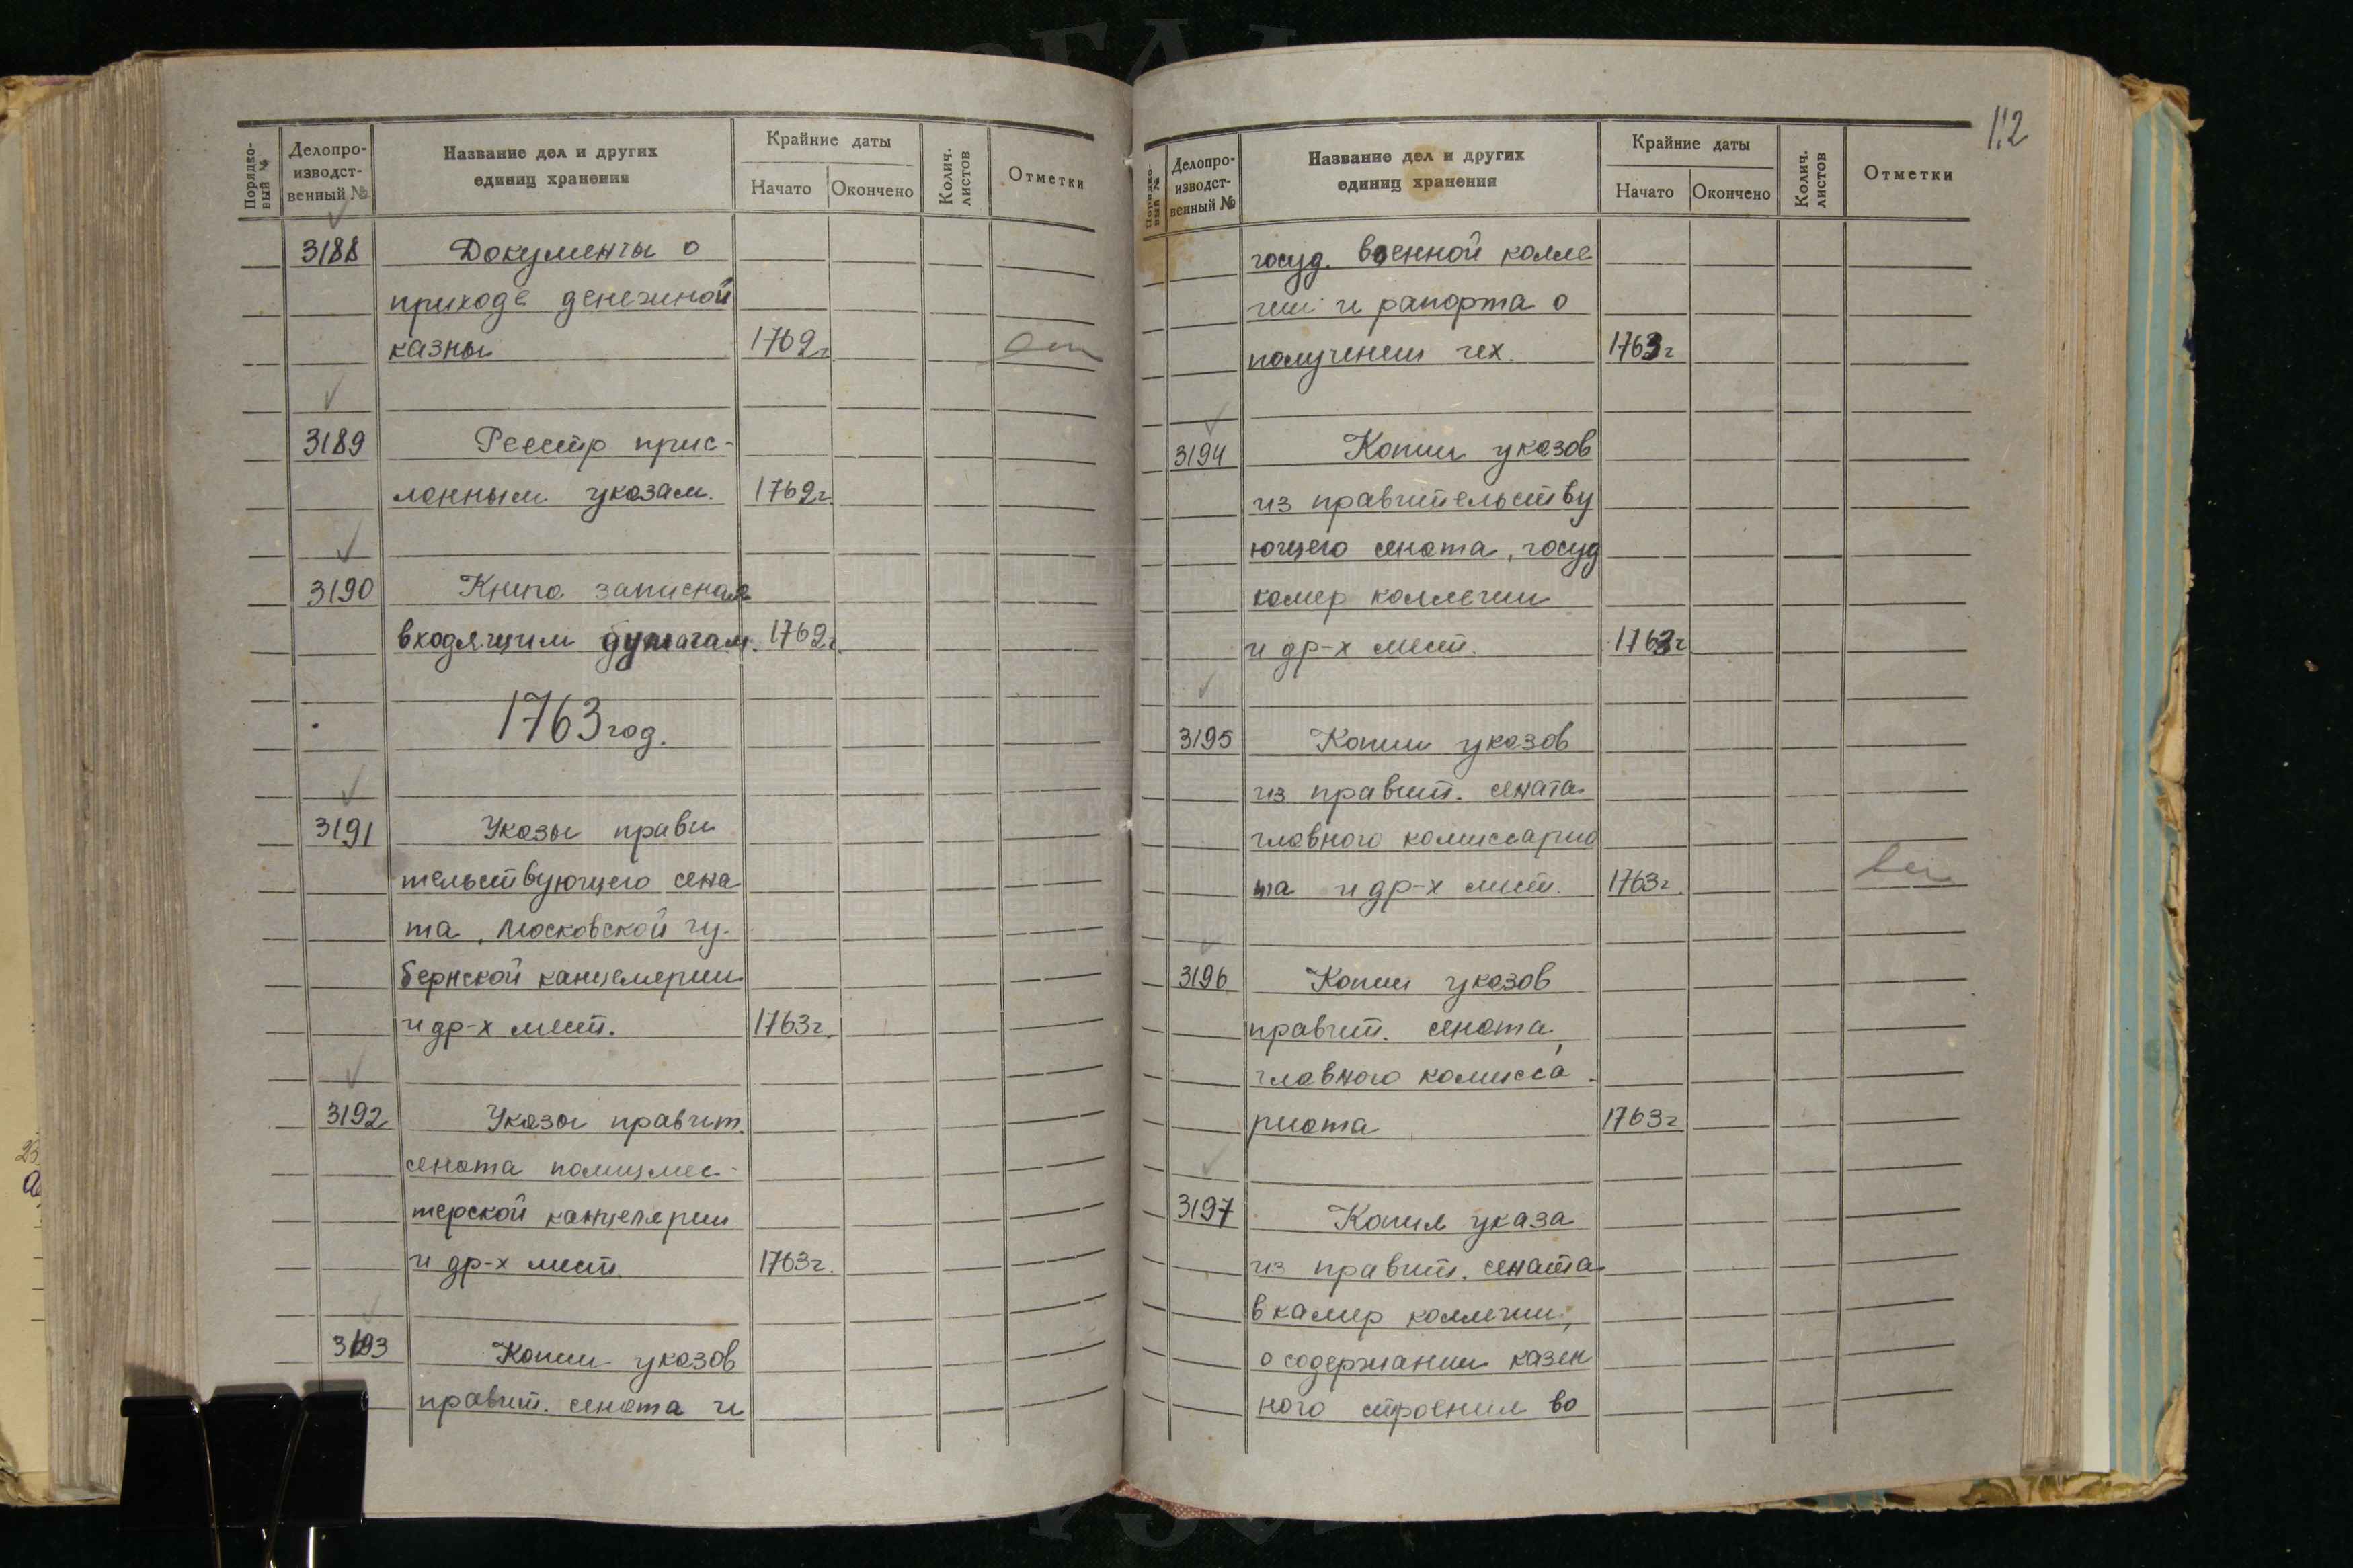 Порядко-
вый №
Делопро-
изводст-
венный №
Название дел и других
единиц хранения
Крайние даты
Начато
Окончено
Колич.
листов
Отметки
3188 Документы о
приходе денежной
казны 1762г
3189 Реестр прис-
ланным указам. 1762г.
3190 Книга записная
входящим бумагам. 1762г.
1763 год.
3191 Указы прави
тельствующего сена
та, Московской гу-
бернской канцелярии
и др-х мест. 1763г.
3192 Указы правит.
сената полицмес-
терской канцелярии
и др-х мест. 1763г.
3193 Копии указов
правит. сената и
112
Порядко-
вый №
Делопро-
изводст-
венный №
Название дел и других
единиц хранения
Крайние даты
Начато
Окончено
Колич.
листов
Отметки
госуд. военной колле
гии и рапорта о
получении их. 1763г
3194 Копии указов
из правительству
ющего сената, госуд
камер коллегии
и др-х мест. 1763г
3195 Копии указов
из правит. сената
главного комиссариа
та и др-х мест. 1763г.
3196 Копии указов
правит. сената,
главного комисса
риата 1763г
3197 Копия указа
из правит. сената
в камер коллегии,
о содержании казен
ного строения во